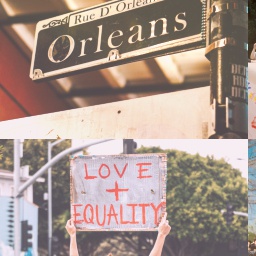 Rue D' Orleans
Orleans
LOVE
+
EQUALITY